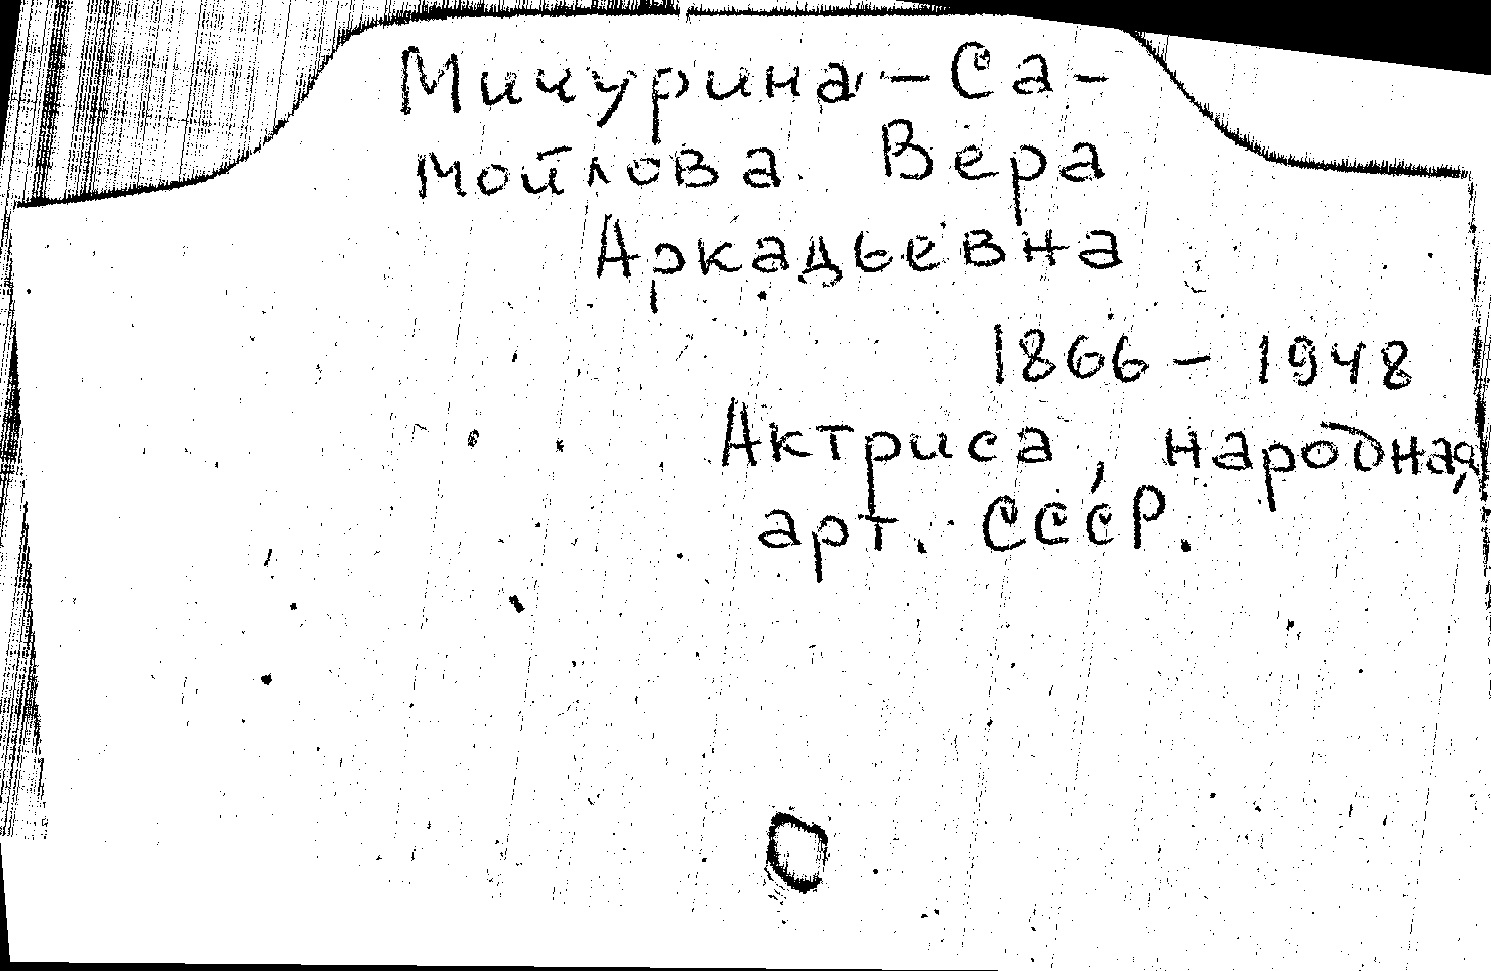 Мичурина-Са-
мойлова Вера
Аркадьевна
1866 - 1948
Актриса, народная
арт. СССР.